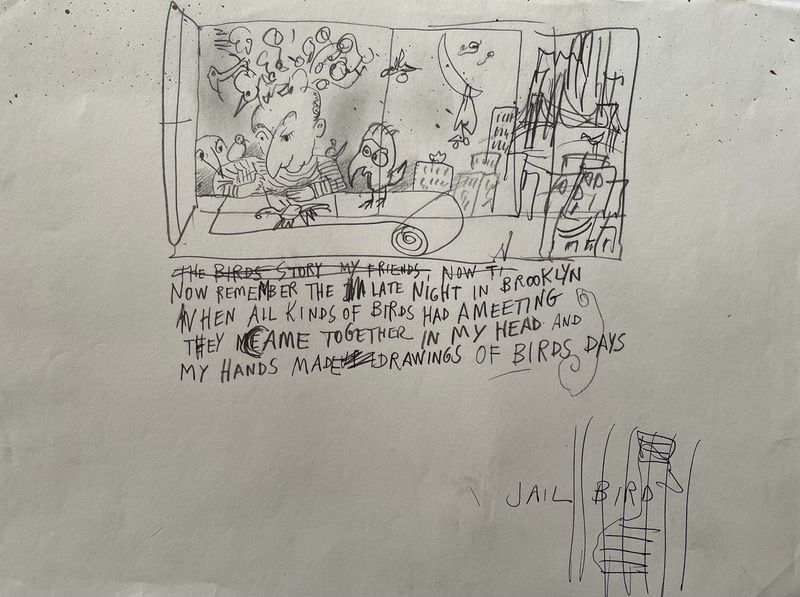 THE BIRDS STORY MY FRIENDS, NOW
NOW REMEMBER THE LATE NIGHT IN BROOKLYN
WHEN ALL KINDS OF BIRDS HAD A MEETING
THEY CAME TOGETHER IN MY HEAD AND
MY HANDS MADE DRAWINGS OF BIRDS DAYS
JAIL BIRD